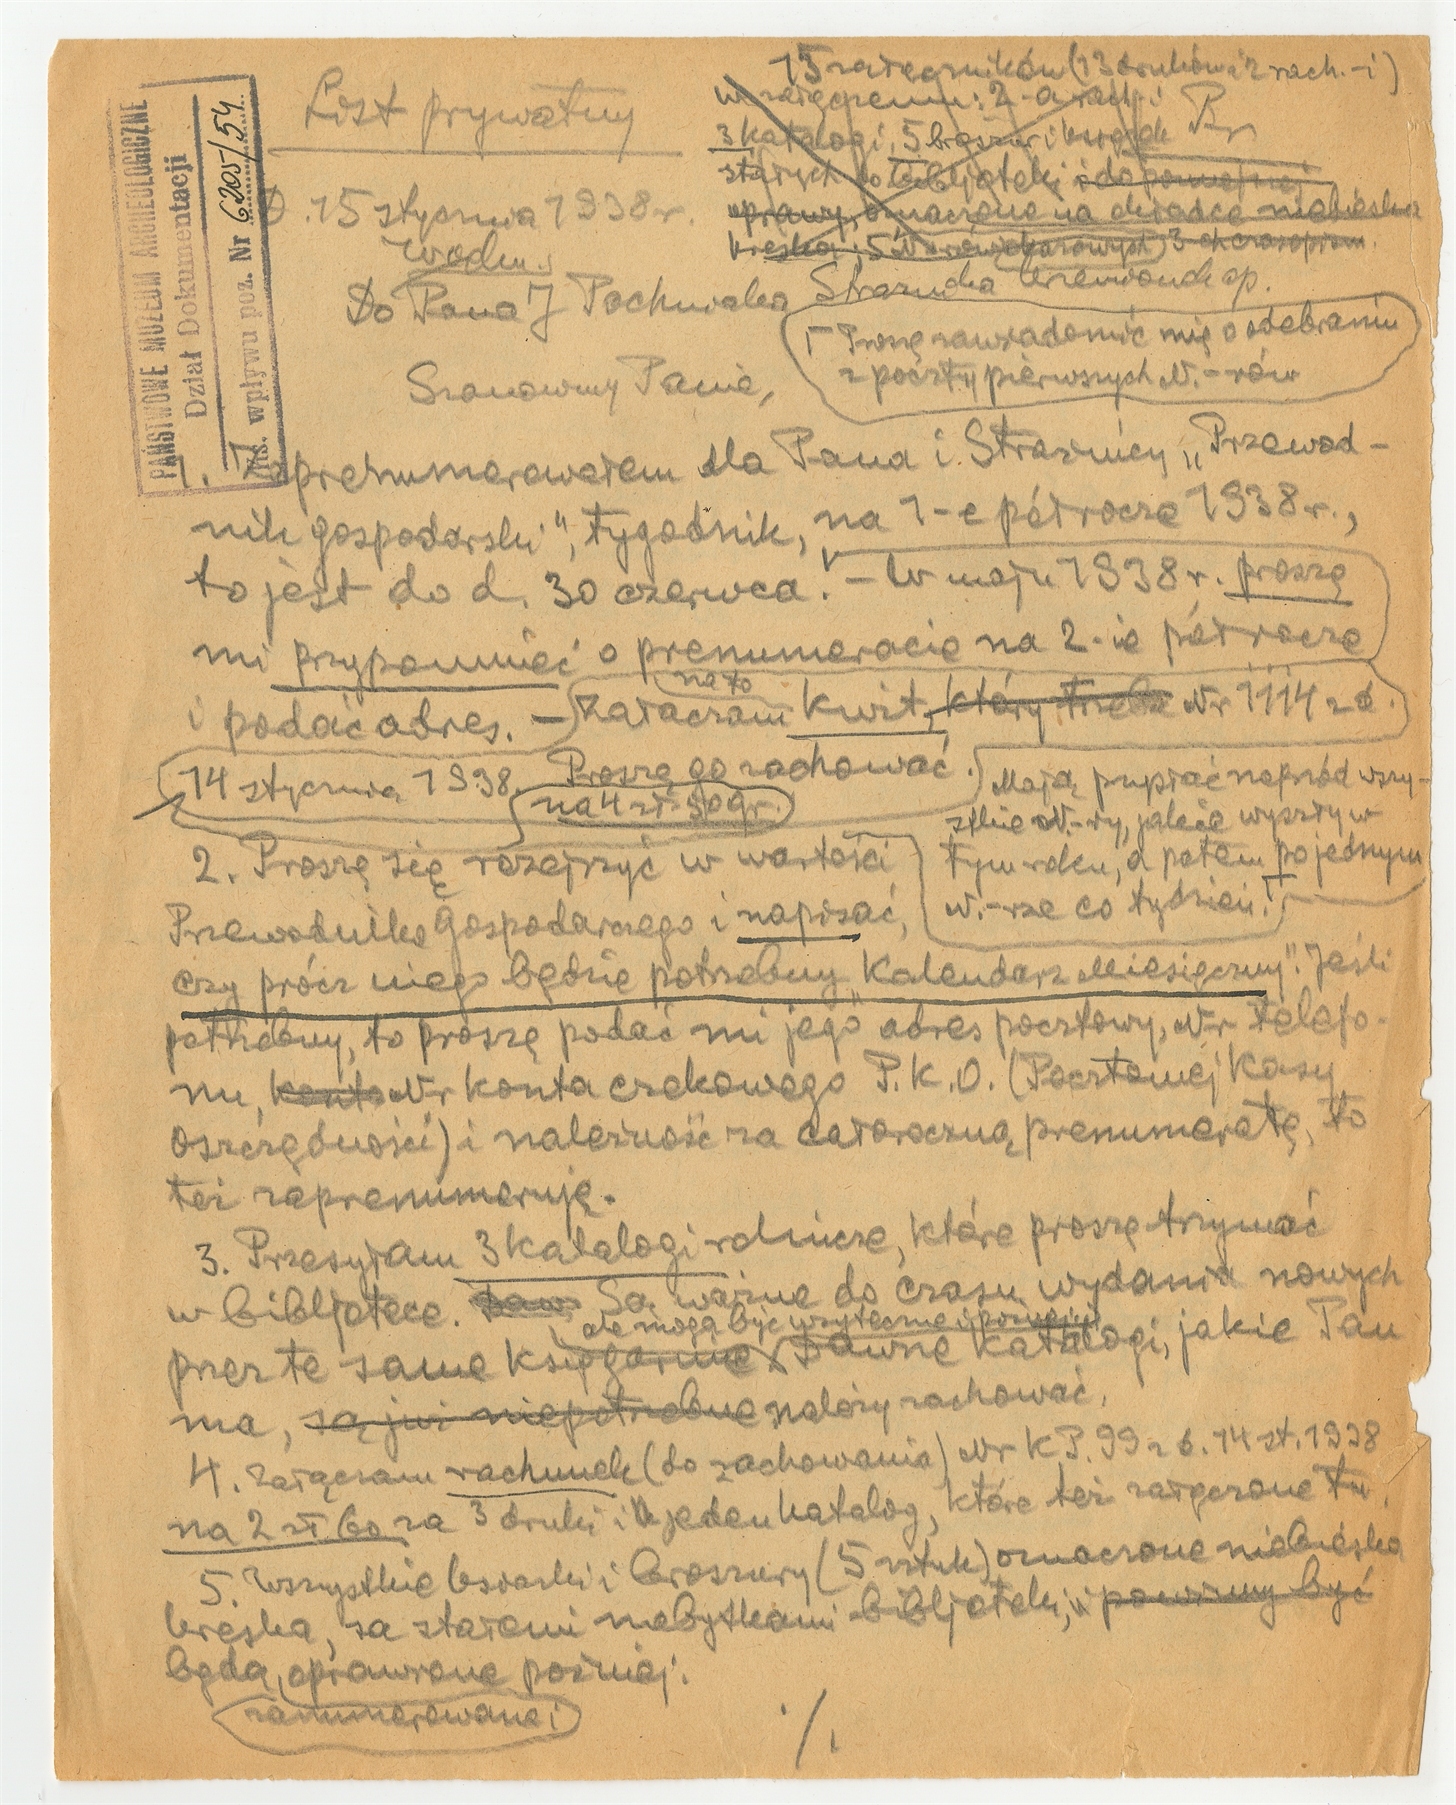 PAŃSTWOWE MUZEUM ARCHEOLOGICZNE
Dział Dokumentacji
wpływu poz. Nr 6205/54
15 załączników (13 druków i 2 rach.-i)
List prywatny
w załączeniu: 2-a rach-i
3 katalogi, 5 broszur i
starych do bibljoteki i do
oprawy, oznaczone na okładce niebieską
kreską: 5 N-rów 3-ch czasopism.
D. 15 stycznia 1938 r.
Do Pana J Pochwalka Strażnika
Szanowny Panie,
Proszę zawiadomić mię o odebraniu
z poczty pierwszych N.-rów
1. Zaprenumerowałem dla Pana i Strażnicy „Przewod-
nik gospodarski", tygodnik, na 1-e półrocze 1938 r.,
to jest do d. 30 czerwca. – W maju 1938 r. proszę
mi przypomnieć o prenumeracie na 2-ie półrocze
i podać adres. – Załączam na to kwit, który trzeba Nr 1114 z d.
14 stycznia 1938. Proszę go zachować.
na 4 zł. 50 gr.
Mają przysłać naprzód wszy-
stkie N.-ry, jakie wyszły w
tym roku, a potem po jednym
N.-rze co tydzień.
2. Proszę się rozejrzyć w wartości
Przewodnika Gospodarczego i napisać,
czy prócz niego będzie potrzebny „Kalendarz Miesięczny". Jeśli
potrzebny, to proszę podać mi jego adres pocztowy, Nr telefo-
nu, konto Nr konta czekowego P.K.O. (Pocztowej Kasy
Oszczędności) i należność za całoroczną prenumeratę, to
też zaprenumeruję.
3. Przesyłam 3 katalogi rolnicze, które proszę trzymać
w bibljotece. Są ważne do czasu wydania nowych
ale mogą być użyteczne i później
przez te same księgarnie. Dawne katalogi, jakie Pan
ma, są już niepotrzebne należy zachować.
4. Załączam rachunek (do zachowania) Nr K.P. 99 z d. 14 st. 1938
na 2 zł 60 za 3 druki i jeden katalog, które też załączone tu.
5. Wszystkie książki i broszury (5 sztuk) oznaczone niebieską
kreską, są stałemi nabytkami bibljoteki, i powinny być
będą oprawione później.
zanumerowane i
./.